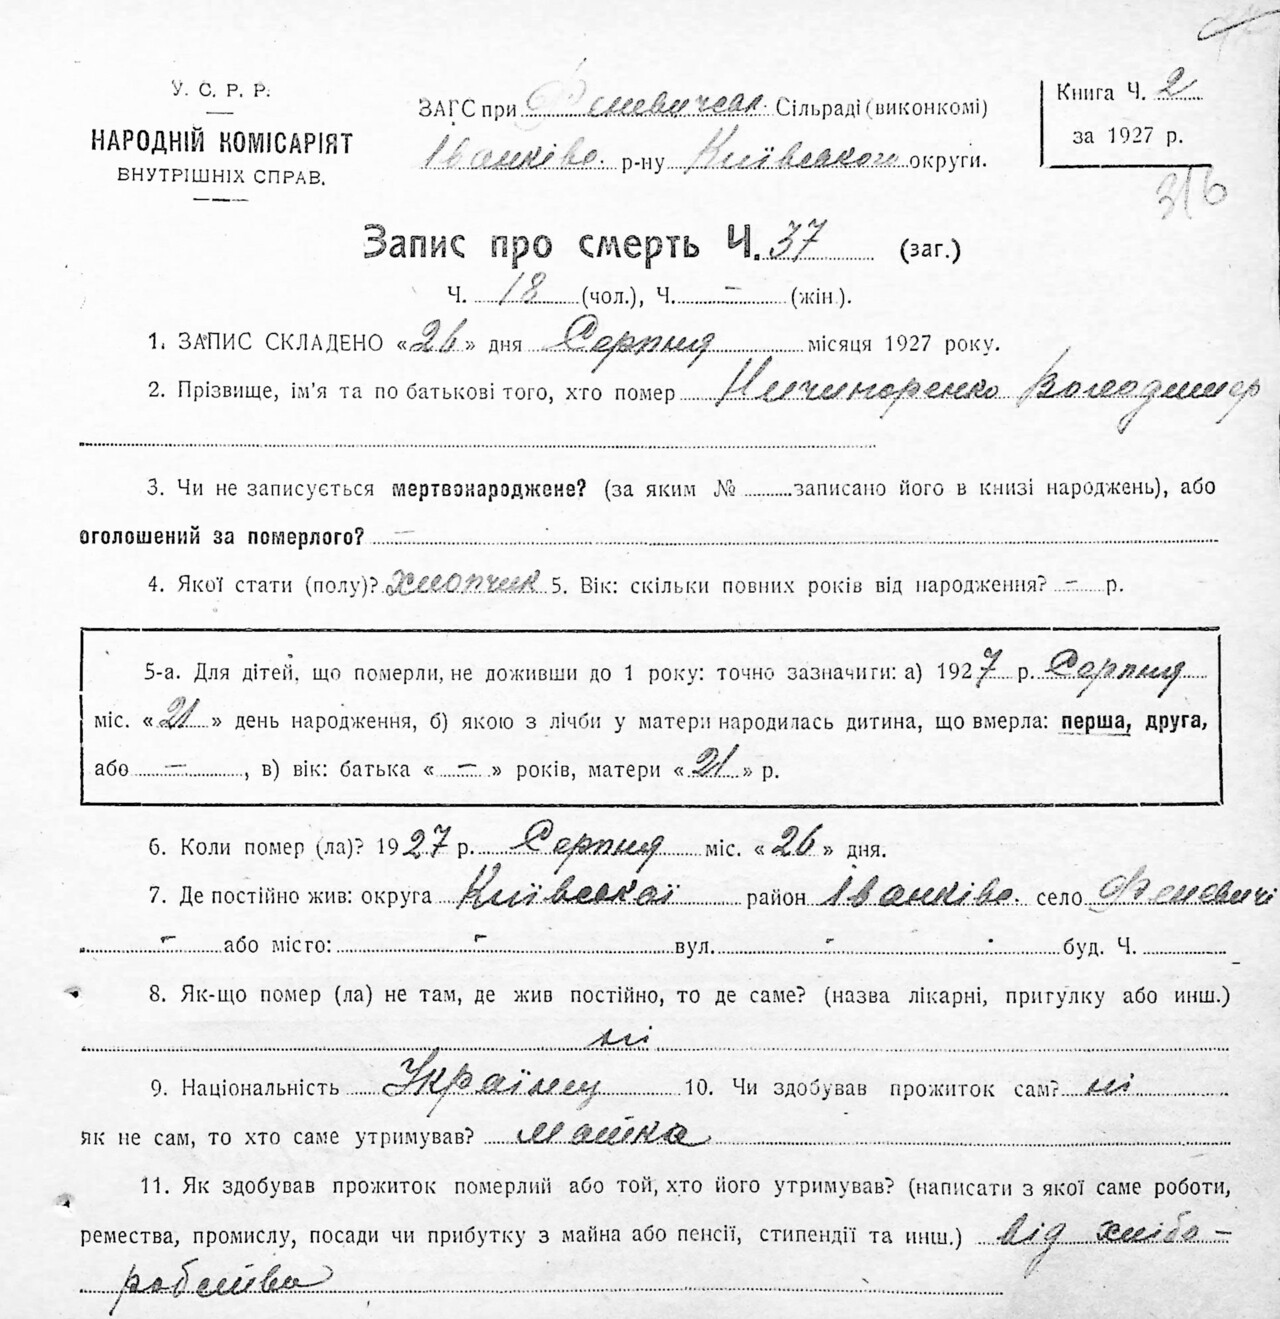 У. С. Р. Р.
НАРОДНІЙ КОМІСАРІЯТ
ВНУТРІШНІХ СПРАВ.
ЗАГС при Феневичській Сільраді (виконкомі)
Іванківс. р-ну Київської округи.
Книга Ч. 2
за 1927 р.
316
Запис про смерть Ч. 37 (заг.)
Ч. 18 (чол.), Ч. – (жін.).
1. ЗАПИС СКЛАДЕНО «26» дня Серпня місяця 1927 року.
2. Прізвище, ім'я та по батькові того, хто помер Ничипоренко Володимир
3. Чи не записується мертвонароджене? (за яким № записано його в книзі народжень), або
оголошений за померлого? –
4. Якої стати (полу)? хлопчик 5. Вік: скільки повних років від народження? – р.
5-а. Для дітей, що померли, не доживши до 1 року: точно зазначити: а) 1927 р. Серпня
міс. «21» день народження, б) якою з лічби у матери народилась дитина, що вмерла: перша, друга,
або –, в) вік: батька «–» років, матери «21» р.
6. Коли помер (ла)? 1927 р. Серпня міс. «26» дня.
7. Де постійно жив: округа Київської район Іванківс. село Феневичі
– або місто: – вул. – буд. Ч.
8. Як-що помер (ла) не там, де жив постійно, то де саме? (назва лікарні, пригулку або инш.)
ні
9. Національність Українец 10. Чи здобував прожиток сам? ні
як не сам, то хто саме утримував? матка
11. Як здобував прожиток померлий або той, хто його утримував? (написати з якої саме роботи,
ремества, промислу, посади чи прибутку з майна або пенсії, стипендії та инш.) від хлібо-
робства